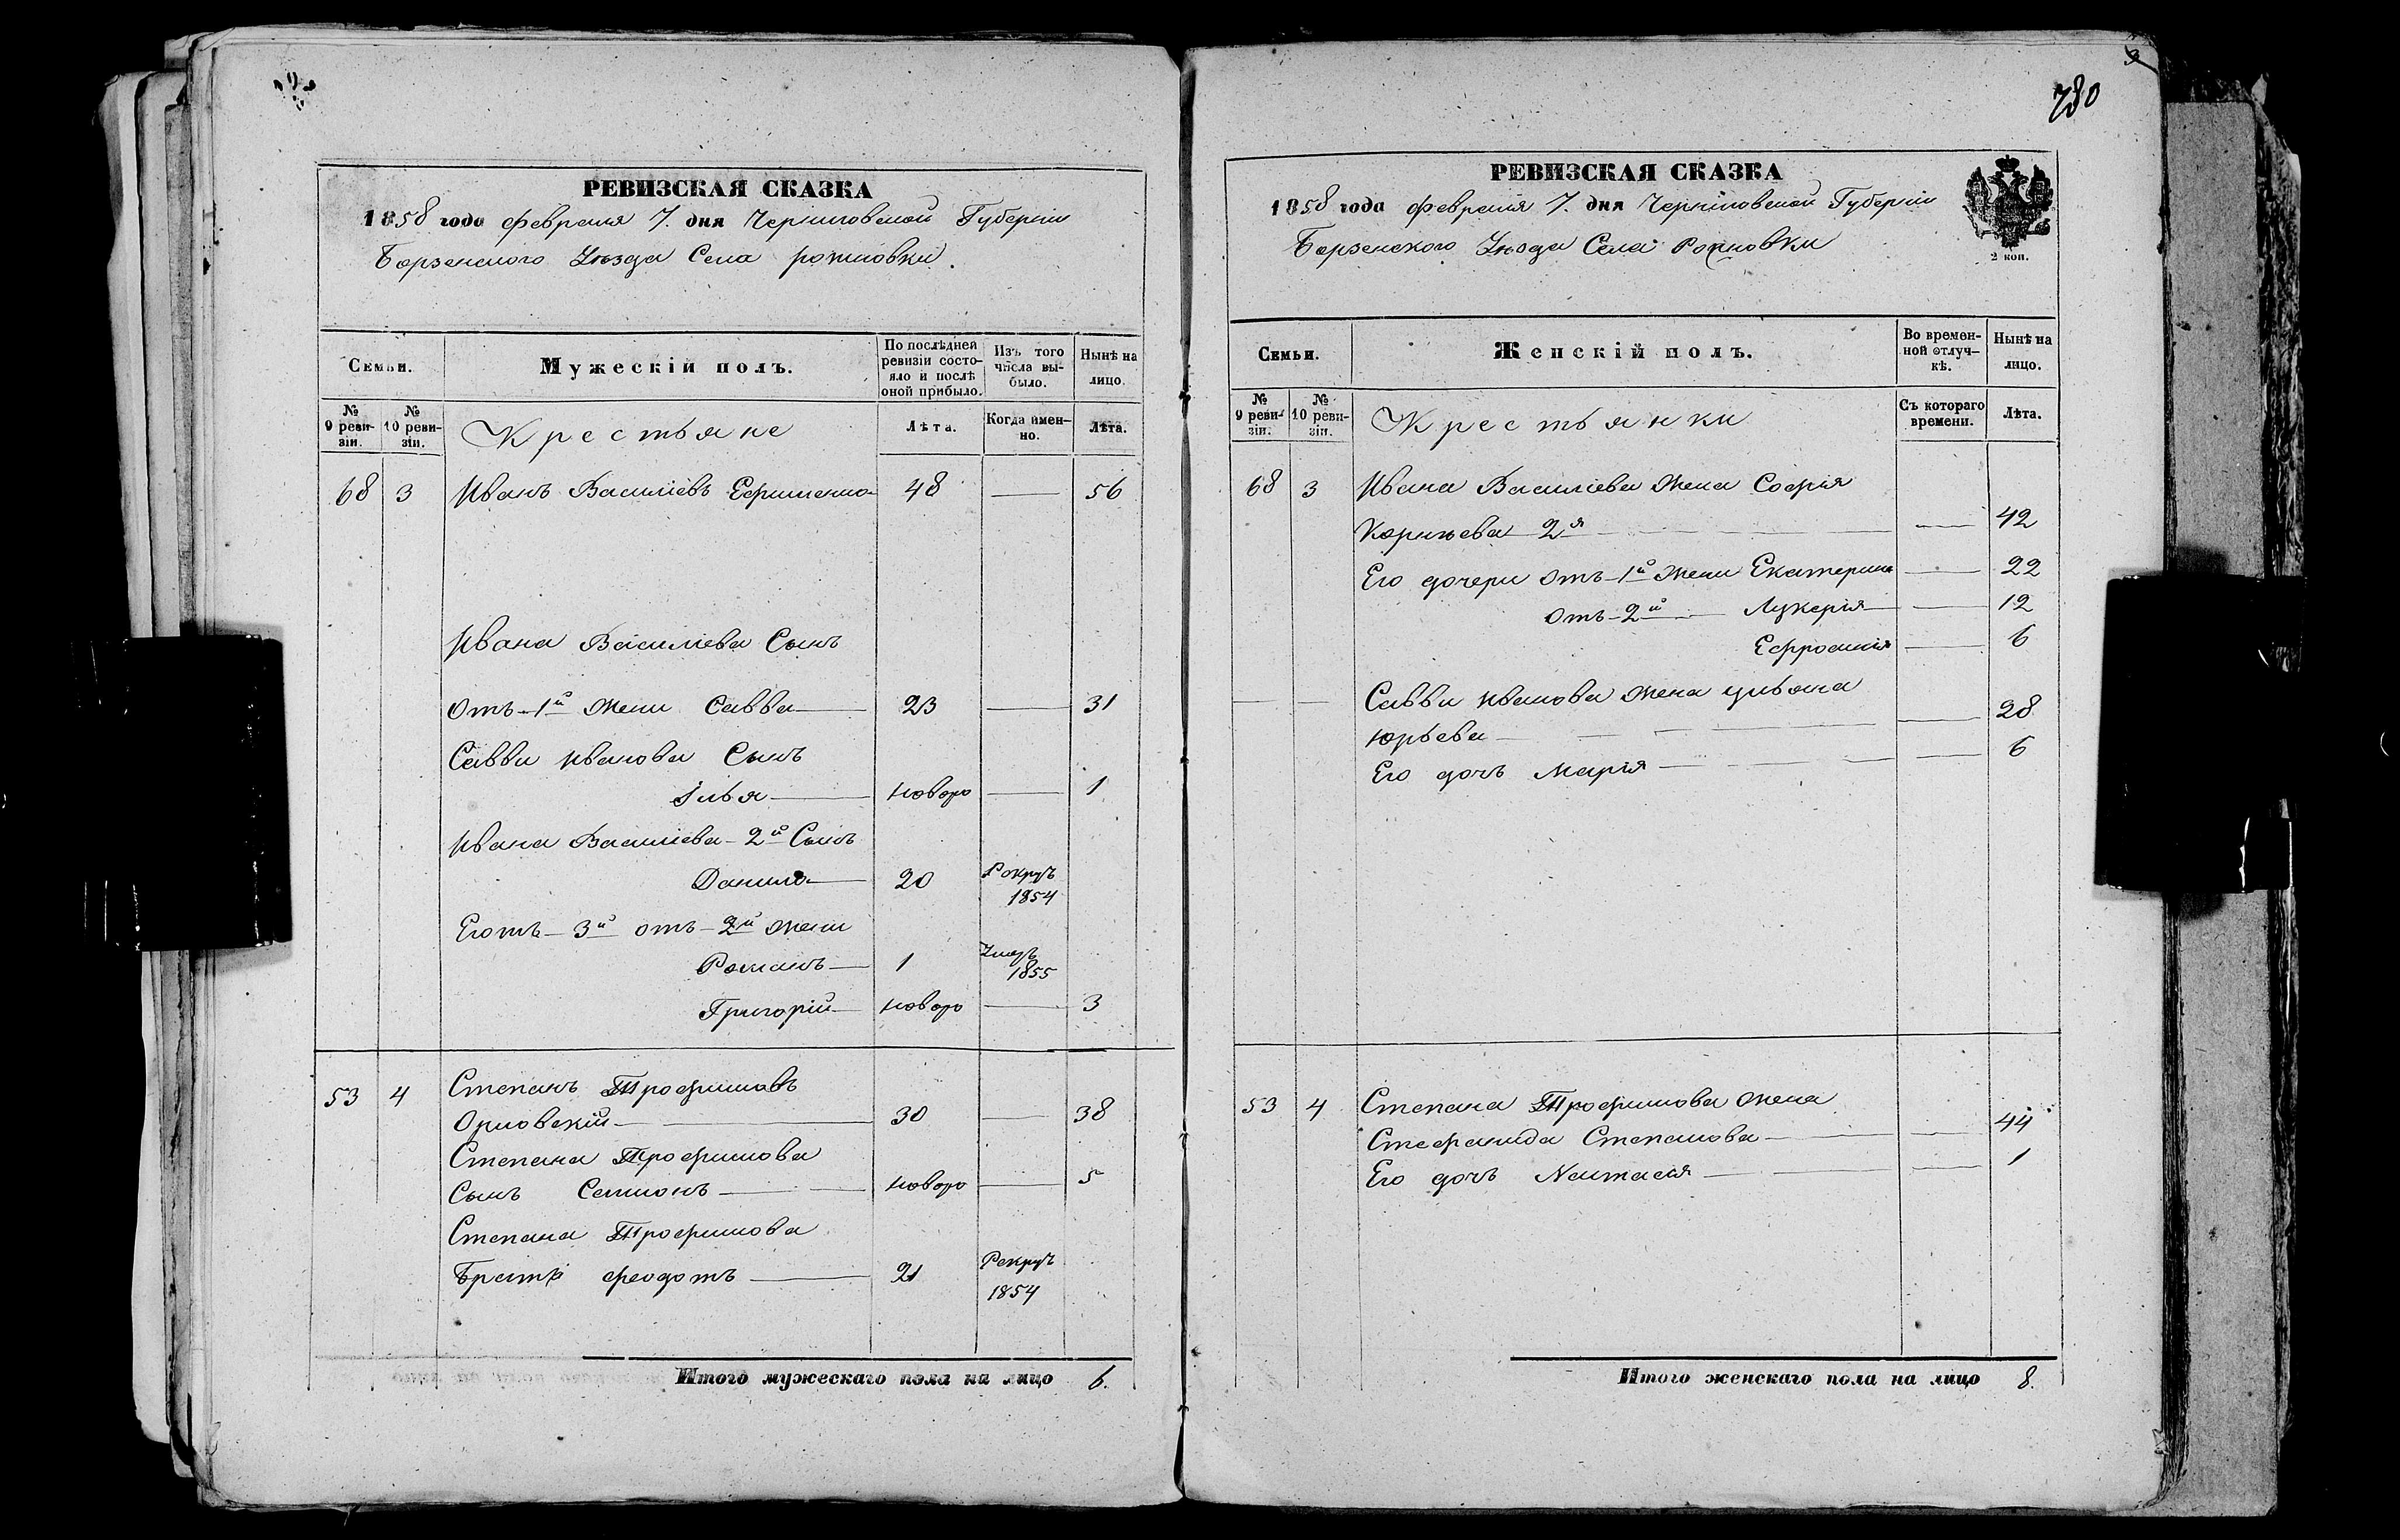 РЕВИЗСКАЯ СКАЗКА
1858 года февраля 7. дня Черниговской Губерніи
Борзенского Уѣзда Села рожновки.
Семьи.
Мужескій полъ.
По послѣдней ревизіи состояло и послѣ оной прибыло.
Изъ того числа выбыло.
Нынѣ на лицо.
№ 9 ревизіи.
№ 10 ревизіи.
Крестьяне
Лѣта.
Когда именно.
Лѣта.
68 3 Иванъ Василіевъ Ефименко 48 — 56
Ивана Василіева Сынъ
отъ 1й жени Савва — 23 — 31
Савви Иванова Сынъ
Илья — новоро — 1
Ивана Василіева 2й Сынъ
Данило — 20 Рекрутъ 1854
Егожъ 3й отъ 2й жени
Романъ — 1 Умеръ 1855
Григорій — новоро — 3
53 4 Степанъ Трофимовъ
Орловскій — 30 — 38
Степана Трофимова
Сынъ Семионъ — новоро — 5
Степана Трофимова
Братъ феодотъ — 21 Рекрутъ
1854
Итого мужескаго пола на лицо 6.
780
РЕВИЗСКАЯ СКАЗКА
1858 года февраля 7. дня Черниговской Губерніи
Борзенского Уѣзда Села Рожновки
2 коп.
Семьи.
Женскій полъ.
Во временной отлучкѣ.
Нынѣ на лицо.
№ 9 ревизіи.
№ 10 ревизіи.
Крестьянки
Съ котораго времени.
Лѣта.
68 3 Ивана Василіева жена Софія
Корнѣева 2я — 42
Его дочери отъ 1й жени Екатерина — 22
отъ 2й — Лукерія — 12
Ефросинія — 6
Савви Иванова жена уліяна
Юрьева — 28
Его дочь Марія — 6
53 4 Степана Трофимова жена
Стефанида Степанова — 44
Его дочь Настасія — 1
Итого женскаго пола на лицо 8.